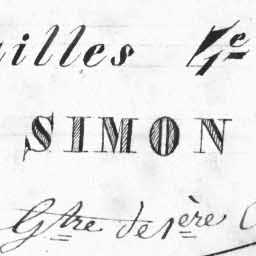 illes
SIMON
Gtre de 1ère